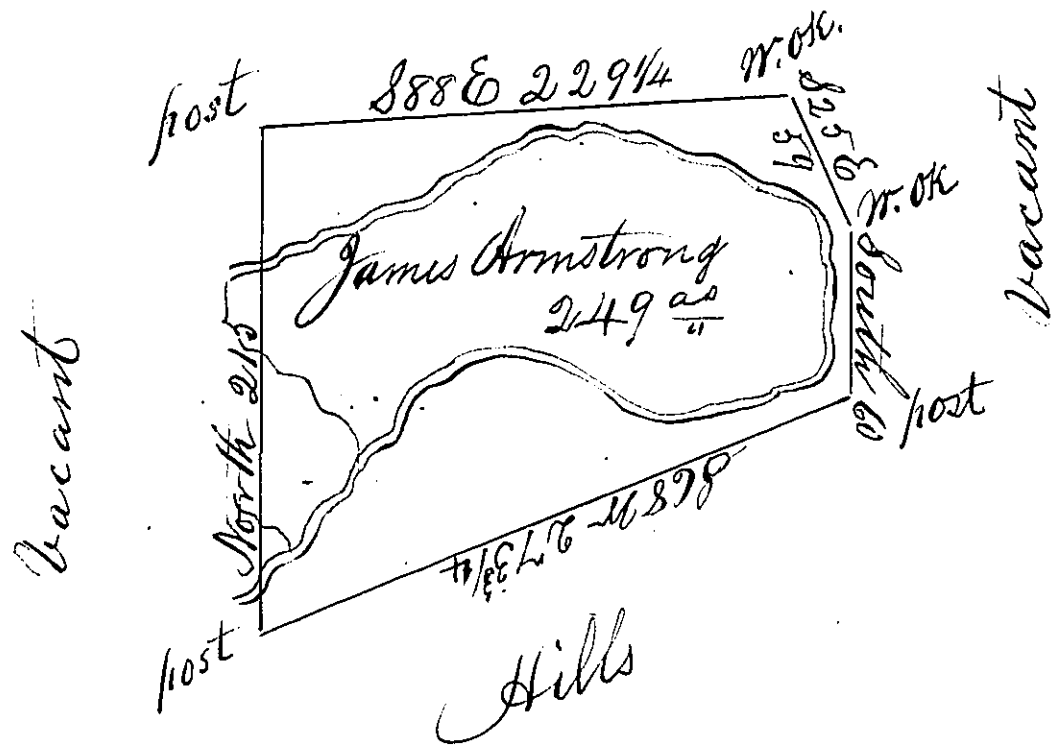 post
S88E 229¼
W. OK.
S25E
59
W. OK
vacant
James Armstrong
249 as
South 60
post
vacant
North
S68W 273¾
post
Hills